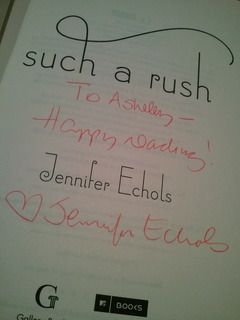 such a rush
To Asheley —
Happy reading!
Jennifer Echols
♡ Jennifer Echols
G
MTV BOOKS